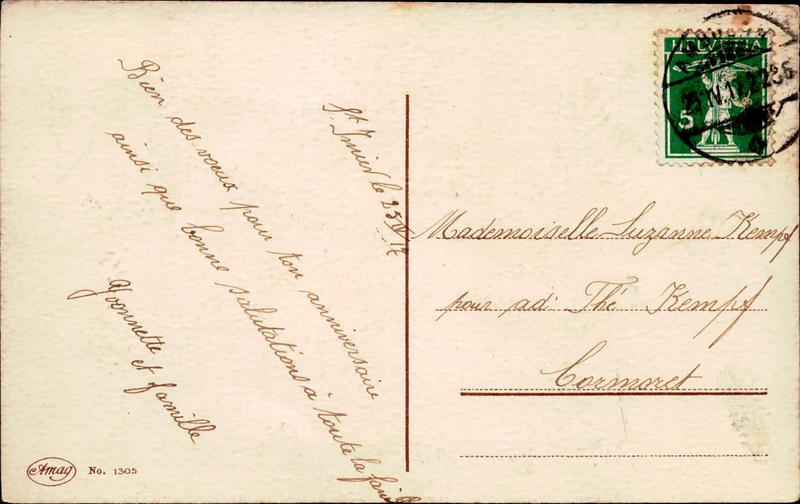 St Imier le 25 IV 17
Bien des voeux pour ton anniversaire
ainsi que bonne salutations à toute la famille
Yvonnette et famille
HELVETIA
5
Mademoiselle Suzanne Kempf
pour ad. Thé Kempf
Cormoret
Amag No. 1305